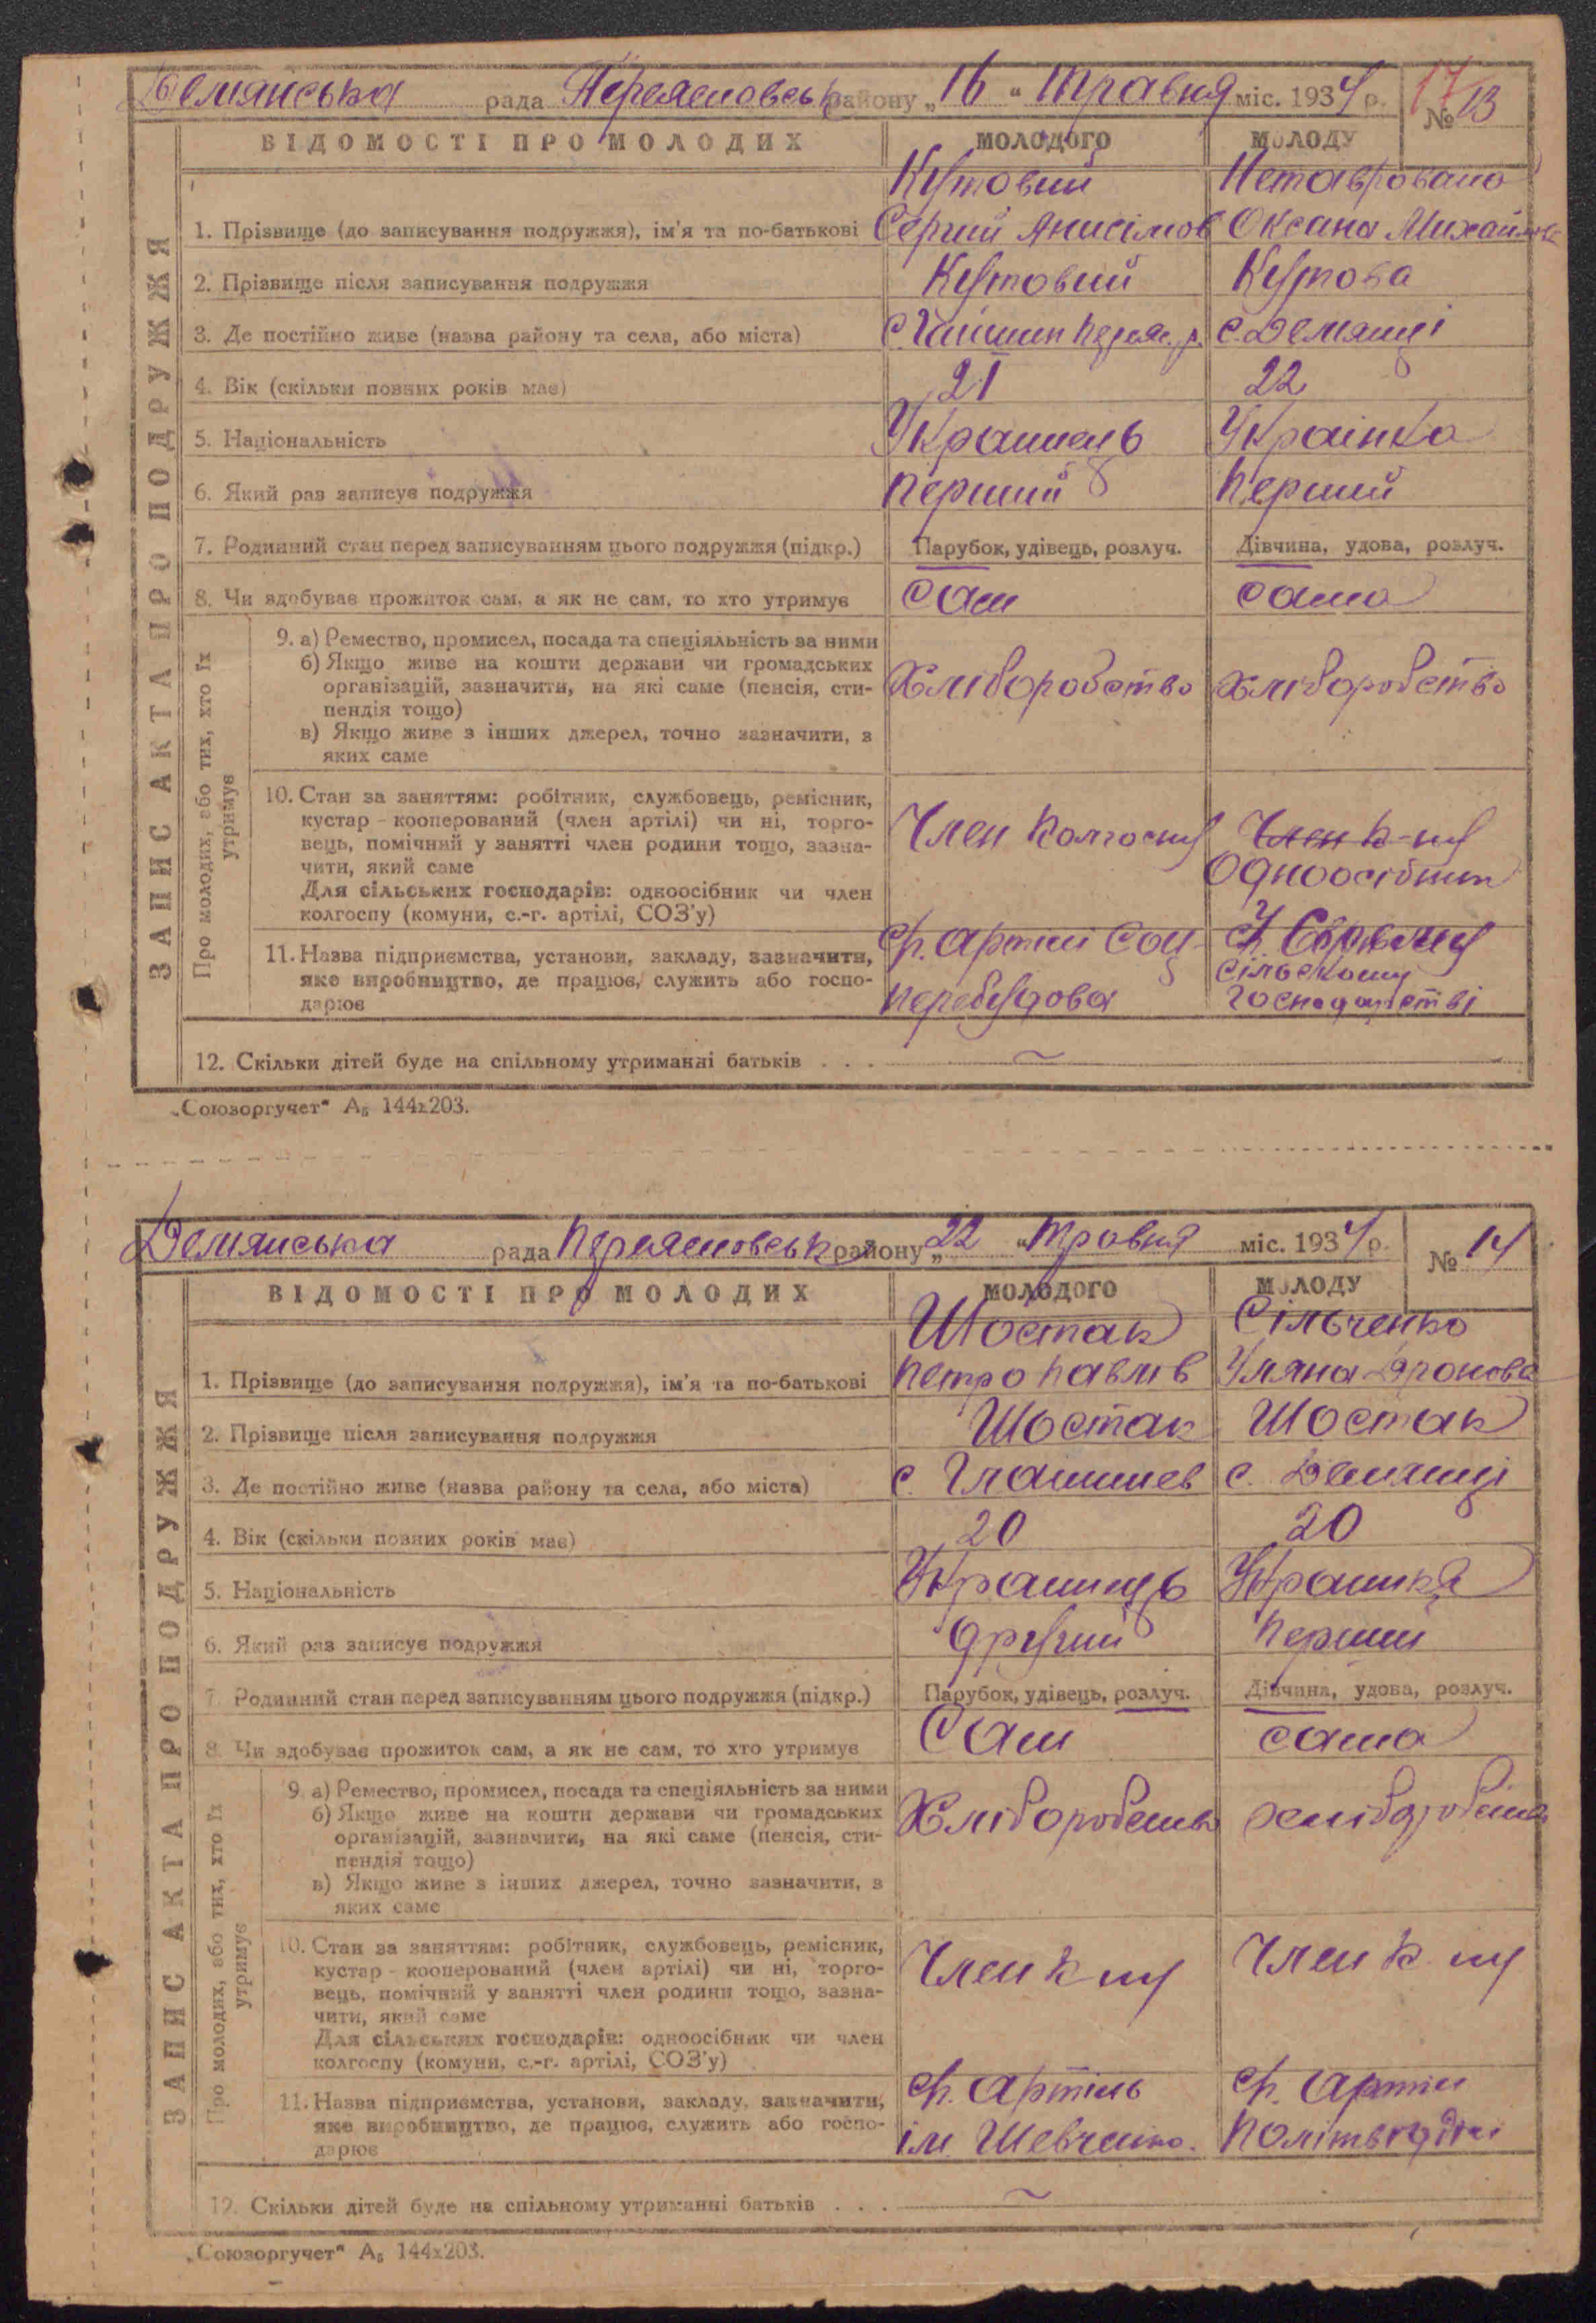 Демянська рада Переясловськ району „16“ травня міс. 1934 р.
17
№ 13
ВІДОМОСТІ ПРО МОЛОДИХ
МОЛОДОГО
МОЛОДУ
ЗАПИС АКТА ПРО ПОДРУЖЖЯ
1. Прізвище (до записування подружжя), ім'я та по-батькові
Кутовий
Сергий Анисімов
Нетавровано
Оксана Михайлова
2. Прізвище після записування подружжя
Кутовий
Кутова
3. Де постійно живе (назва району та села, або міста)
с. Гайшин Переяс. р.
с. Демянці
4. Вік (скільки повних років має)
21
22
5. Національність
Украинець
Украінка
6. Який раз записує подружжя
перший
перший
7. Родинний стан перед записуванням цього подружжя (підкр.)
Парубок, удівець, розлуч.
Дівчина, удова, розлуч.
8. Чи здобуває прожиток сам, а як не сам, то хто утримує
сам
сама
Про молодих, або тих, хто їх утримує
9. а) Ремество, промисел, посада та спеціяльність за ними
б) Якщо живе на кошти держави чи громадських
організацій, зазначити, на які саме (пенсія, сти-
пендія тощо)
в) Якщо живе з інших джерел, точно зазначити, з
яких саме
Хліборобство
хліборобство
10. Стан за заняттям: робітник, службовець, ремісник,
кустар-кооперований (член артілі) чи ні, торго-
вець, помічний у занятті член родини тощо, зазна-
чити, який саме
Для сільських господарів: одноосібник чи член
колгоспу (комуни, с.-г. артілі, СОЗ'у)
Член колгоспу
Член к-пу
Одноосібник
11. Назва підприємства, установи, закладу, зазначити,
яке виробництво, де працює, служить або госпо-
дарює
ср. артіли Соц
перебудова
сільскому
господарстві
12. Скільки дітей буде на спільному утриманні батьків . . .
~
„Союзоргучет“ А₅ 144х203.
Демянська рада Переясловськ району „22“ травня міс. 1934 р.
№ 14
ВІДОМОСТІ ПРО МОЛОДИХ
МОЛОДОГО
МОЛОДУ
ЗАПИС АКТА ПРО ПОДРУЖЖЯ
1. Прізвище (до записування подружжя), ім'я та по-батькові
Шостак
Петро Павлів
Сільченко
Уляна
2. Прізвище після записування подружжя
Шостак
Шостак
3. Де постійно живе (назва району та села, або міста)
с.
с. Демянці
4. Вік (скільки повних років має)
20
20
5. Національність
Украинець
Украинка
6. Який раз записує подружжя
другий
перший
7. Родинний стан перед записуванням цього подружжя (підкр.)
Парубок, удівець, розлуч.
Дівчина, удова, розлуч.
8. Чи здобуває прожиток сам, а як не сам, то хто утримує
Сам
сама
Про молодих, або тих, хто їх утримує
9. а) Ремество, промисел, посада та спеціяльність за ними
б) Якщо живе на кошти держави чи громадських
організацій, зазначити, на які саме (пенсія, сти-
пендія тощо)
в) Якщо живе з інших джерел, точно зазначити, з
яких саме
Хліборобство
хліборобство
10. Стан за заняттям: робітник, службовець, ремісник,
кустар-кооперований (член артілі) чи ні, торго-
вець, помічний у занятті член родини тощо, зазна-
чити, який саме
Для сільських господарів: одноосібник чи член
колгоспу (комуни, с.-г. артілі, СОЗ'у)
Член к пу
Член к. пу
11. Назва підприємства, установи, закладу, зазначити,
яке виробництво, де працює, служить або госпо-
дарює
ср. артіль
ім Шевченко.
ср. артіли
Політвідділ
12. Скільки дітей буде на спільному утриманні батьків . . .
~
„Союзоргучет“ А₅ 144х203.